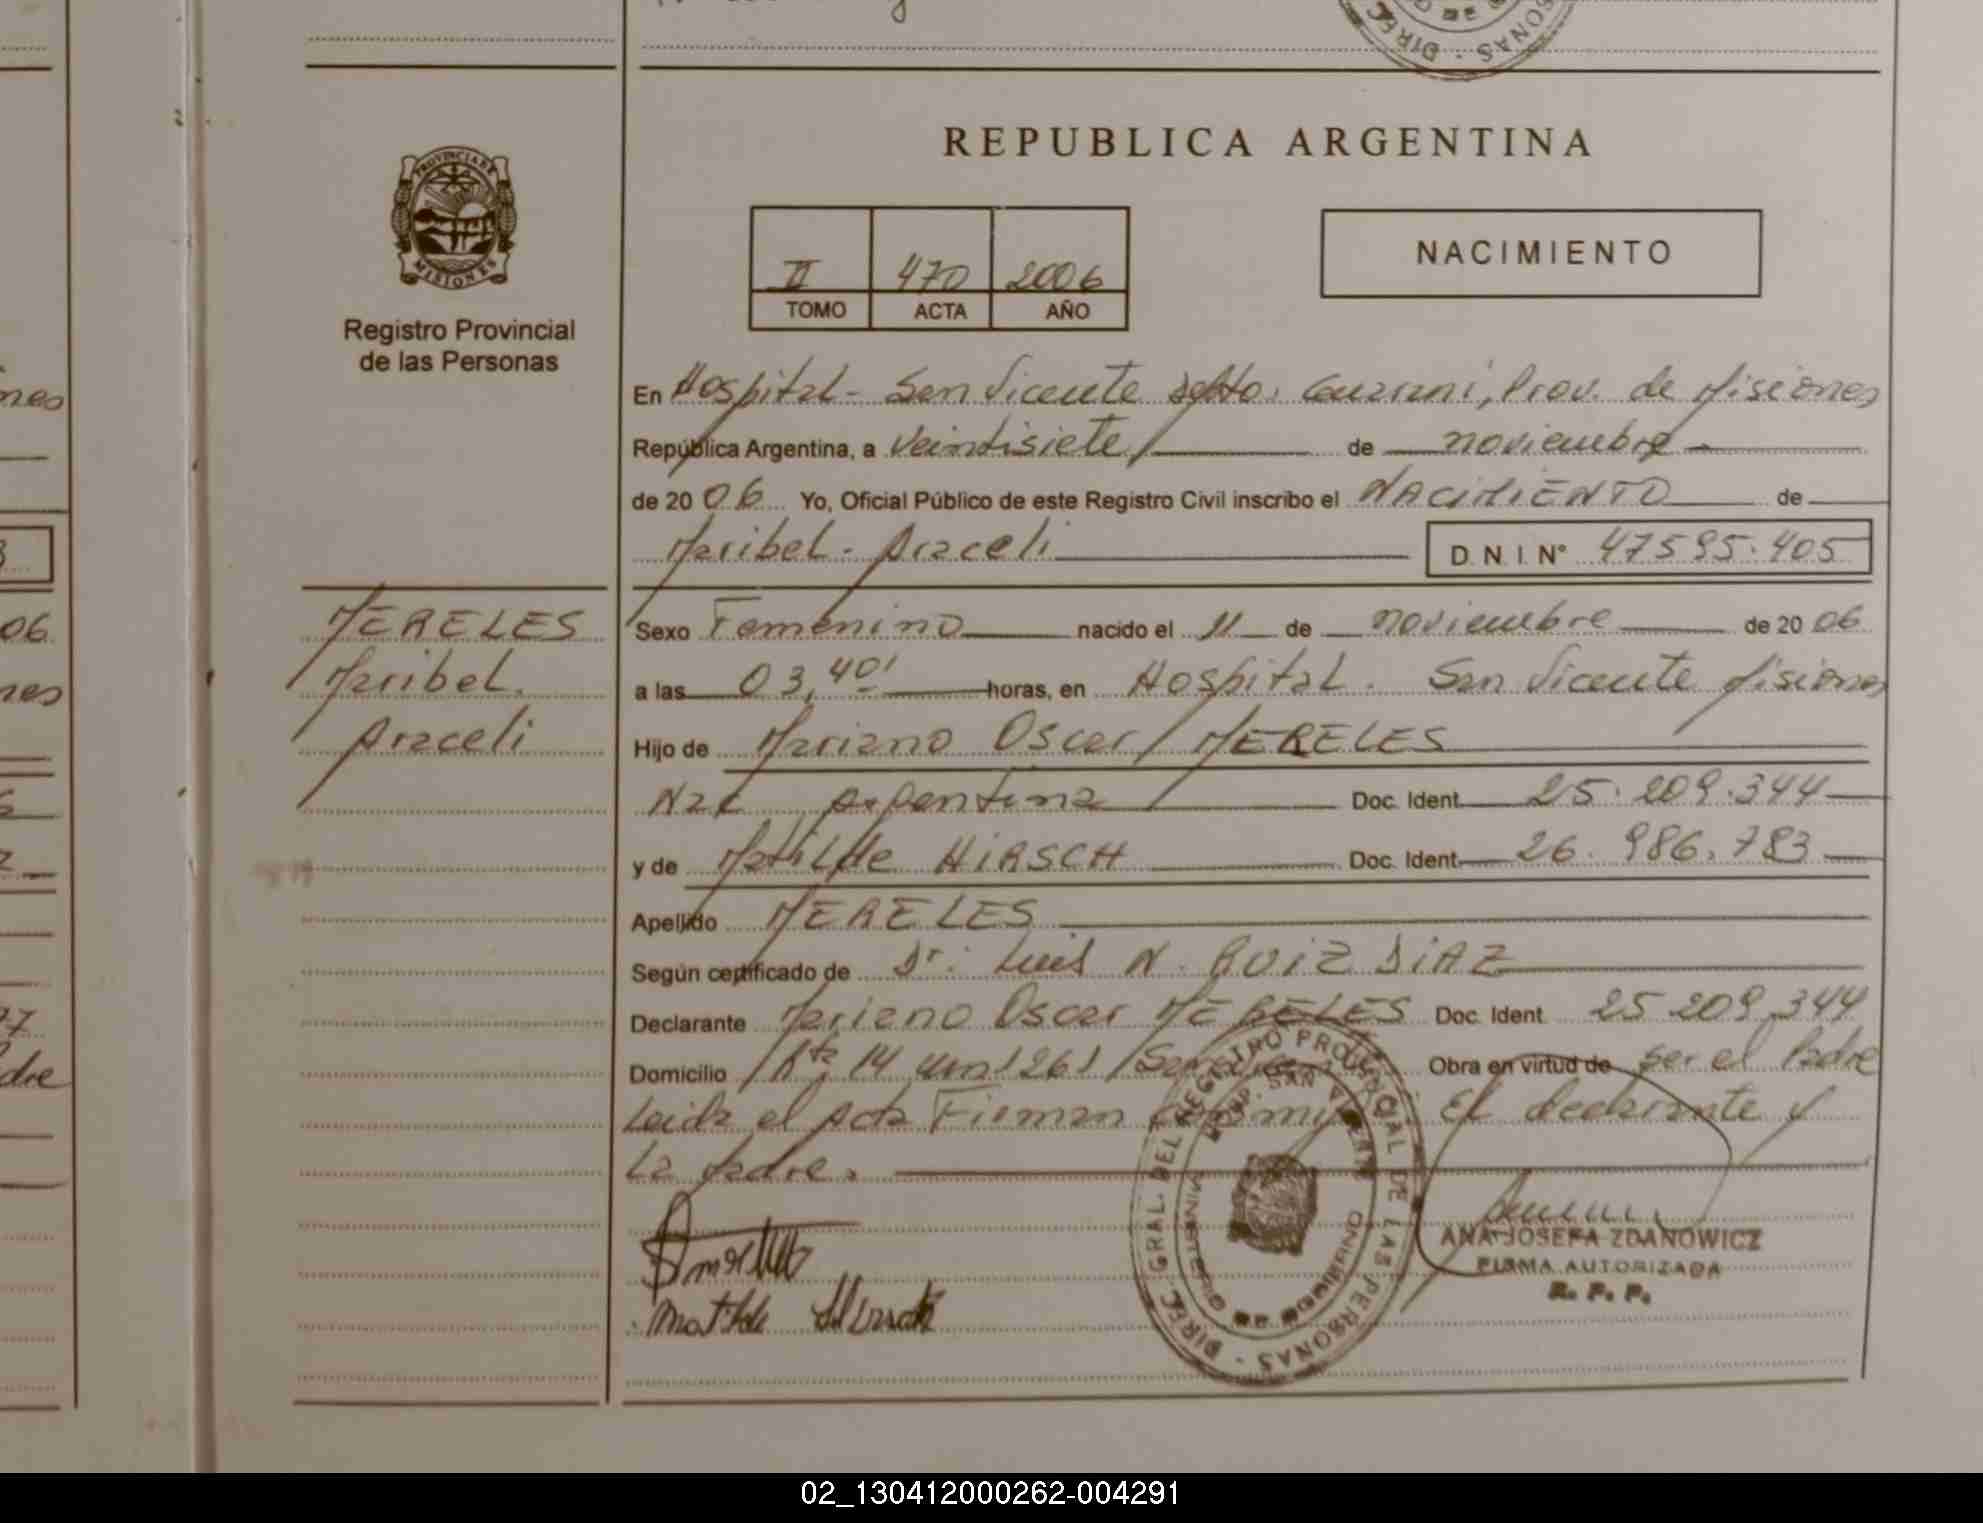 REPUBLICA ARGENTINA
PROVINCIA DE
MISIONES
Registro Provincial
de las Personas
II 470 2006
TOMO ACTA AÑO
NACIMIENTO
En Hospital - San Vicente Depto. Guarani, Prov. de Misiones
República Argentina, a veintisiete de noviembre
de 2006 Yo, Oficial Público de este Registro Civil inscribo el NACIMIENTO de
Maribel - Araceli D. N. I. Nº 47595.405
MERELES
Maribel
Araceli
Sexo Femenino nacido el 11 de noviembre de 2006
a las 03,40' horas, en Hospital. San Vicente Misiones
Hijo de Mariano Oscar MERELES
Nac Argentina Doc. Ident. 25.209.344
y de Matilde HIRSCH Doc. Ident. 26.986.783
Apellido MERELES
Según certificado de Dr. Luis N. RUIZ DIAZ
Declarante Mariano Oscar MERELES Doc. Ident. 25 209.344
Domicilio Rta 14 Km 1261 San Obra en virtud de ser el Padre
Leida el Acta Firman El declarante y
La Madre.
Matilde Hirsch
DIREC. GRAL. DEL REGISTRO PROVINCIAL DE LAS PERSONAS
SAN VICENTE
MINISTERIO DE GOBIERNO
ANA JOSEFA ZDANOWICZ
FIRMA AUTORIZADA
R. P. P.
02_130412000262-004291